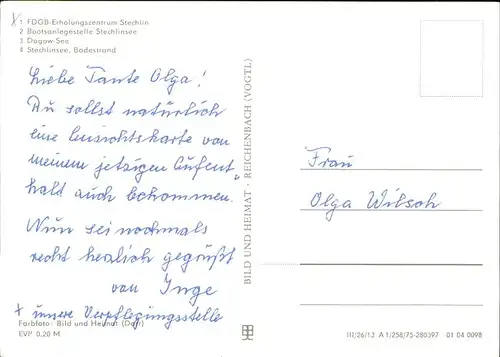 x 1 FDGB-Erholungszentrum Stechlin
2 Bootsanlegestelle Stechlinsee
3 Dagow-See
4 Stechlinsee, Badestrand
Liebe Tante Olga!
Du sollst natürlich
eine Ansichtskarte von
meinem jetzigen Aufent„
halt auch bekommen.
Nun sei nochmals
recht herzlich gegrüßt
von Inge
x unsere Verpflegungsstelle
Farbfoto: Bild und Heimat (Darr)
EVP 0,20 M
BILD UND HEIMAT · REICHENBACH (VOGTL)
Frau
Olga Witsch
III/26/13 A 1/258/75-280397 01 04 0098